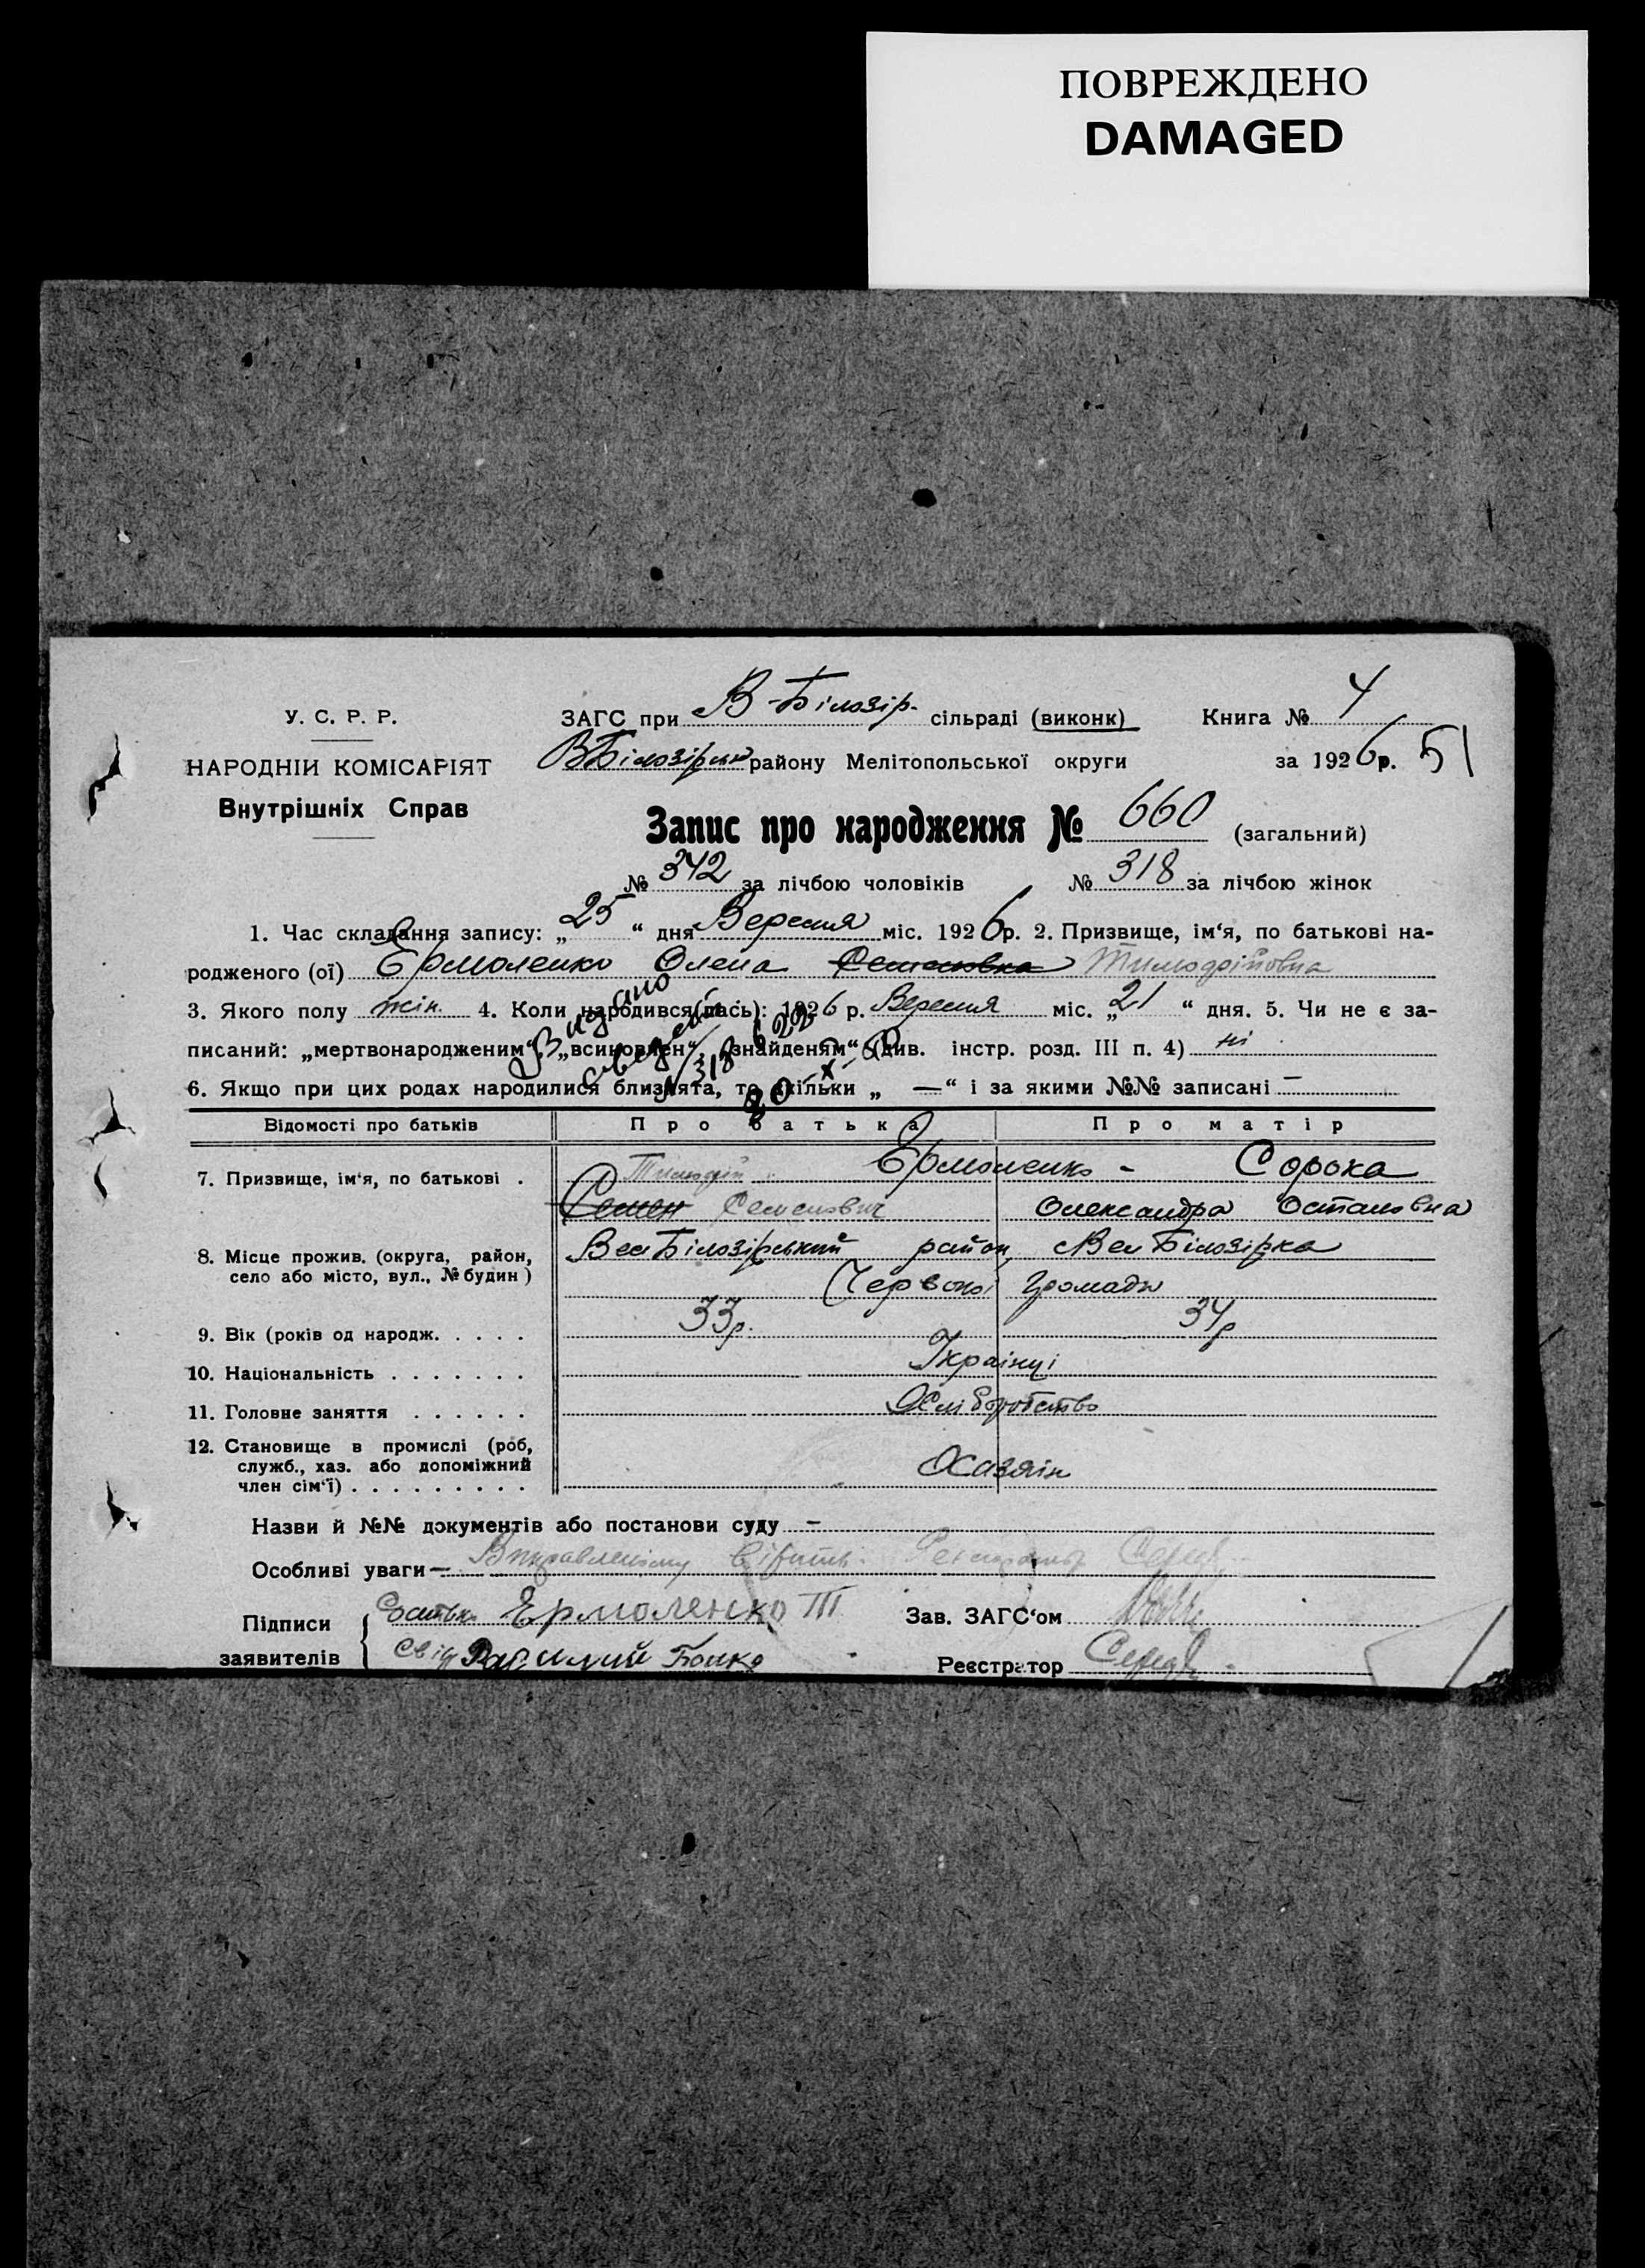 ПОВРЕЖДЕНО
DAMAGED
У. С. Р. Р.
НАРОДНІЙ КОМІСАРІЯТ
Внутрішніх Справ
ЗАГС при В-Білозір. сільраді (виконк)
Книга № 4
ВБілозірськ району Мелітопольської округи
за 1926 р. 51
Запис про народження № 660 (загальний)
№ 342 за лічбою чоловіків № 318 за лічбою жінок
1. Час складання запису: „25“ дня Вересня міс. 1926 р. 2. Призвище, ім‘я, по батькові на-
родженого (ої) Ермоленко Олена Семеновна Тимофійовна
3. Якого полу жін. 4. Коли народився(лась): 1926 р. Вересня міс. „21“ дня. 5. Чи не є за-
писаний: „мертвонародженим“, „всиновлен“, „знайденям“ (див. інстр. розд. III п. 4) ні
6. Якщо при цих родах народилися близнята, то скільки „ — “ і за якими №№ записані —
Видано
318
Відомості про батьків
Про батька
Про матір
7. Призвище, ім‘я, по батькові . Тимофій Ермоленко - Сорока
Семен Семенович Олександра Остаповна
8. Місце прожив. (округа, район,
село або місто, вул., № будин)
Вел Білозірський район, Вел Білозірка
Червоної громади
9. Вік (років од народж. . . . . 33р. 34р
10. Національність . . . . . . . Українці
11. Головне заняття . . . . . . Хліборобство
12. Становище в промислі (роб,
служб., хаз. або допоміжний
член сім‘ї) . . . . . . . . . Хазяїн
Назви й №№ документів або постанови суду —
Особливі уваги — Виправленому вірить. Реєстратор Серед
Підписи
заявителів
батьк Ермоленко Т
свід Василий Бойко
Зав. ЗАГС‘ом
Реєстратор Серед